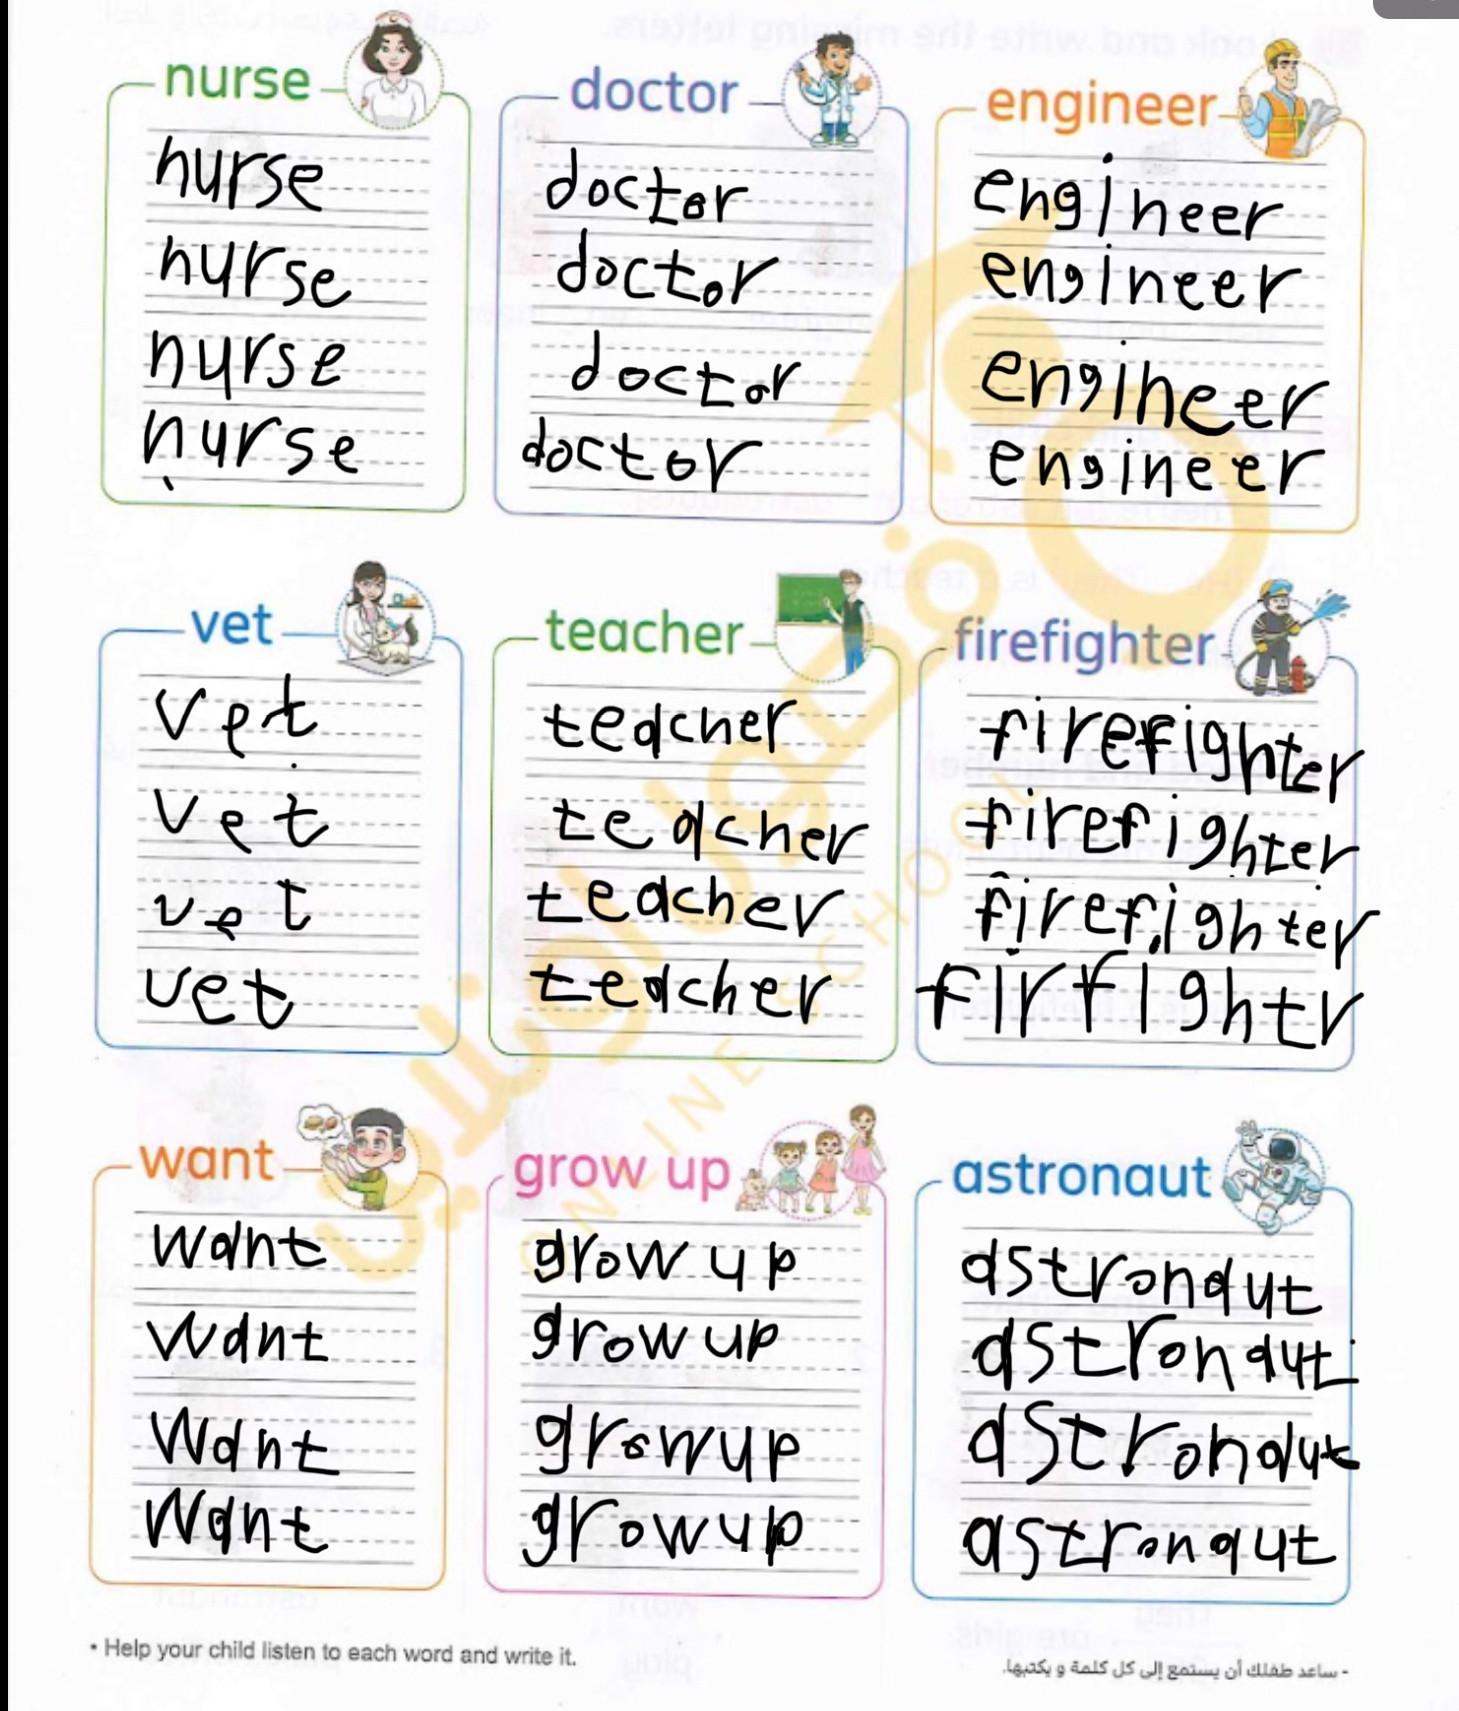 nurse
nurse
nurse
nurse
nurse
doctor
doctor
doctor
doctor
doctor
engineer
engineer
engineer
engineer
engineer
vet
vet
vet
vet
vet
teacher
teacher
teacher
teacher
teacher
firefighter
firefighter
firefighter
firefighter
firfightr
want
want
want
want
want
grow up
grow up
grow up
grow up
grow up
astronaut
astronaut
astronaut
astronaut
astronaut
فصول أونلاين
ONLINE SCHOOL
• Help your child listen to each word and write it.
- ساعد طفلك أن يستمع إلى كل كلمة و يكتبها.